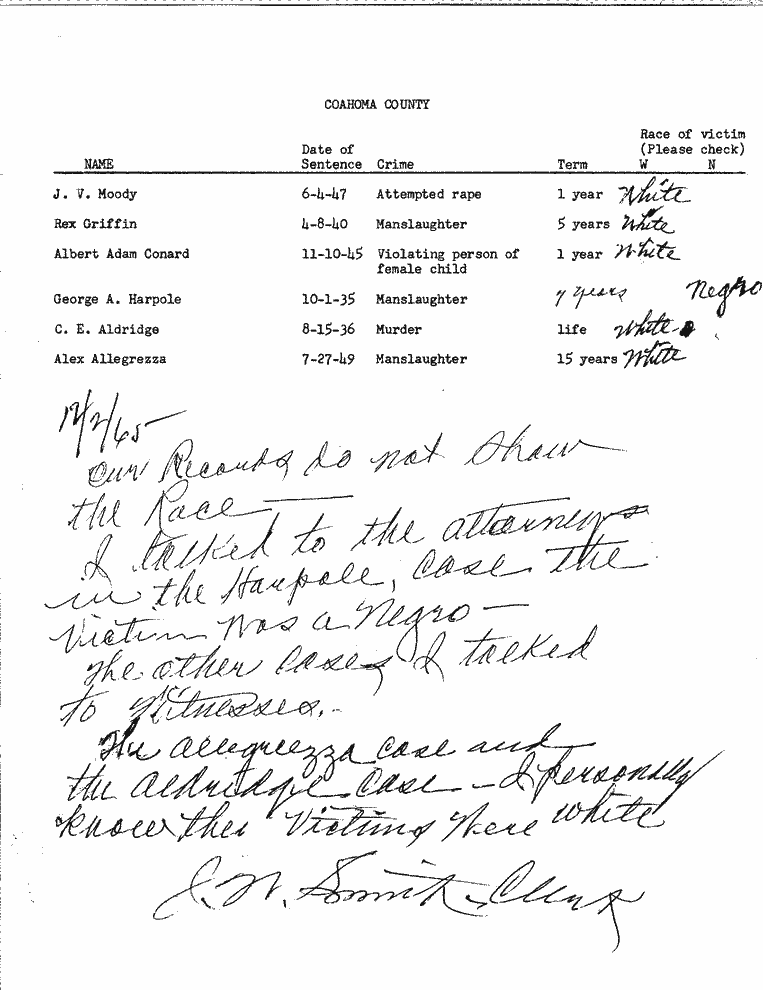 COAHOMA COUNTY
Race of victim
Date of (Please check)
NAME Sentence Crime Term W N
J. V. Moody 6-4-47 Attempted rape 1 year White
Rex Griffin 4-8-40 Manslaughter 5 years White
Albert Adam Conard 11-10-45 Violating person of 1 year White
female child
George A. Harpole 10-1-35 Manslaughter 7 years Negro
C. E. Aldridge 8-15-36 Murder life White
Alex Allegrezza 7-27-49 Manslaughter 15 years White
12/2/65
Our Records do not show
the Race
I talked to the attorneys
in the Harpole, case the
Victim was a Negro —
The other cases I talked
to Witnesses. -
The Allegrezza case and
the Aldridge Case - I personally
know the Victims were white
J. W. Smith, Clerk